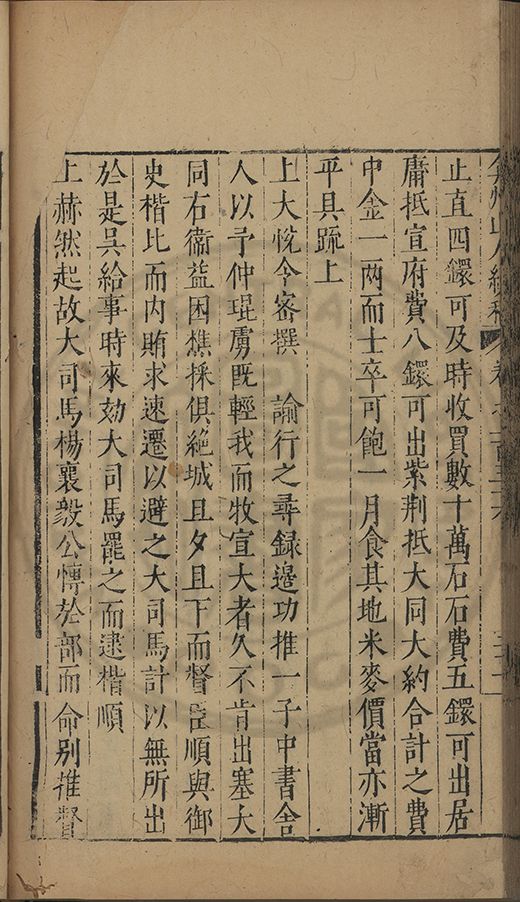 弇州山人續稿 卷之一百三十六
止直四鐶可及時收買數十萬石石費五鐶可出居
庸抵宣府費八鐶可出紫荆抵大同大約合計之費
中金一兩而士卒可飽一月食其地米麥價當亦漸
平具疏上
上大悅令密撰 諭行之尋録邉功推一子中書舍
人以予仲琨虜既輕我而牧宣大者久不肯出塞大
同右衞益困樵採俱絶城且夕且下而督臣順與御
史楷比而内賄求速遷以避之大司馬計以無所出
於是吳給事時來劾大司馬罷之而逮楷順
上赫然起故大司馬楊襄毅公愽於部而命别推督